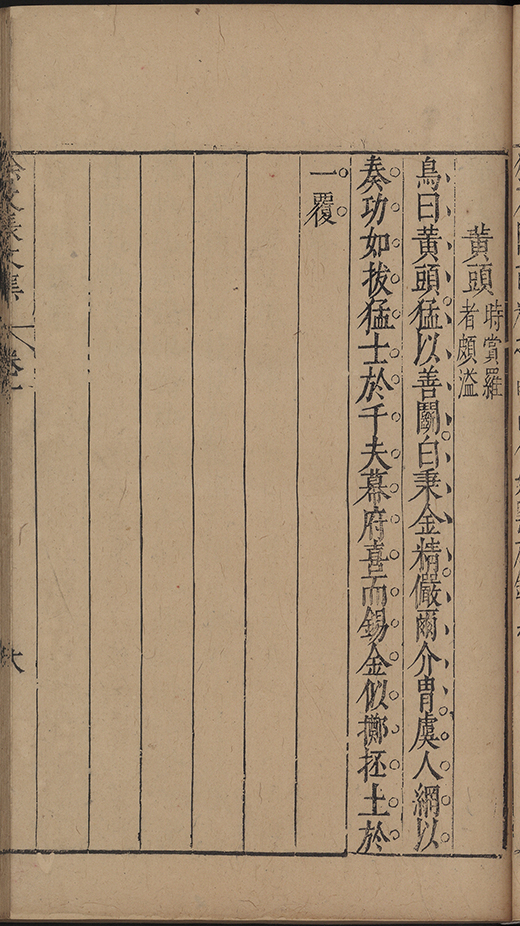 黃頭 時賞羅
者頗溢
鳥曰黃頭猛以善鬭白秉金精儼爾介胄虞人網以
奏功如拔猛士於千夫幕府喜而錫金似擲抔土於
一覆
文集 卷